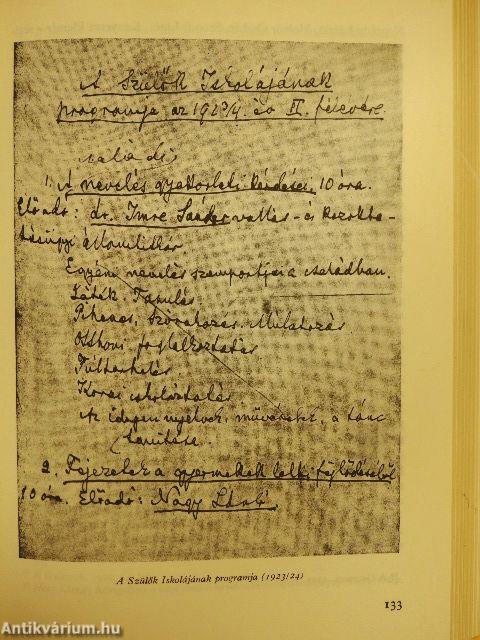 A Szülők Iskolájának
programja az 1923/4. év II. félévére.
családi
1. A nevelés gyakorlati kérdései, 10 óra.
Előadó: dr. Imre Sándor vallás- és közokta-
tásügyi államtitkár
Egyéni nevelés szempontjai a családban.
Játék. Tanulás
Pihenés, szórakozás. Mulatozás.
Otthoni foglalkoztatás
Túlterhelés
Korai iskoláztatás
Az idegen nyelvek, művészetek, a tánc
tanítása.
2. Fejezetek a gyermekek lelki fejlődéséből
10 óra. Előadó: Nagy László
A Szülők Iskolájának programja (1923/24)
133
Antikvárium.hu